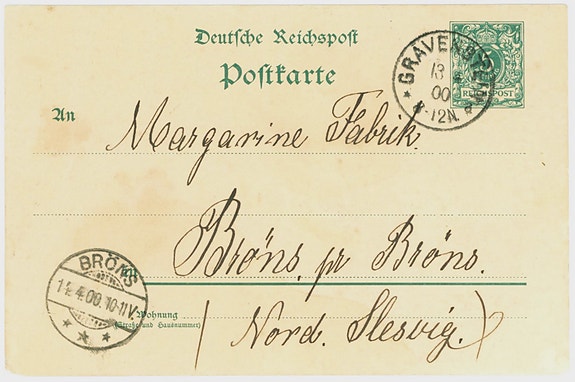 Deutsche Reichspost
Postkarte
GRAVENSTEIN
13 4
00
8-12N.
REICHSPOST
An
Margarine Fabrik.
Bröns. pr Bröns.
in
BRÖNS
14.4.00.10-11V.
Wohnung
(Straße und Hausnummer)
(Nord. Slesvig.)